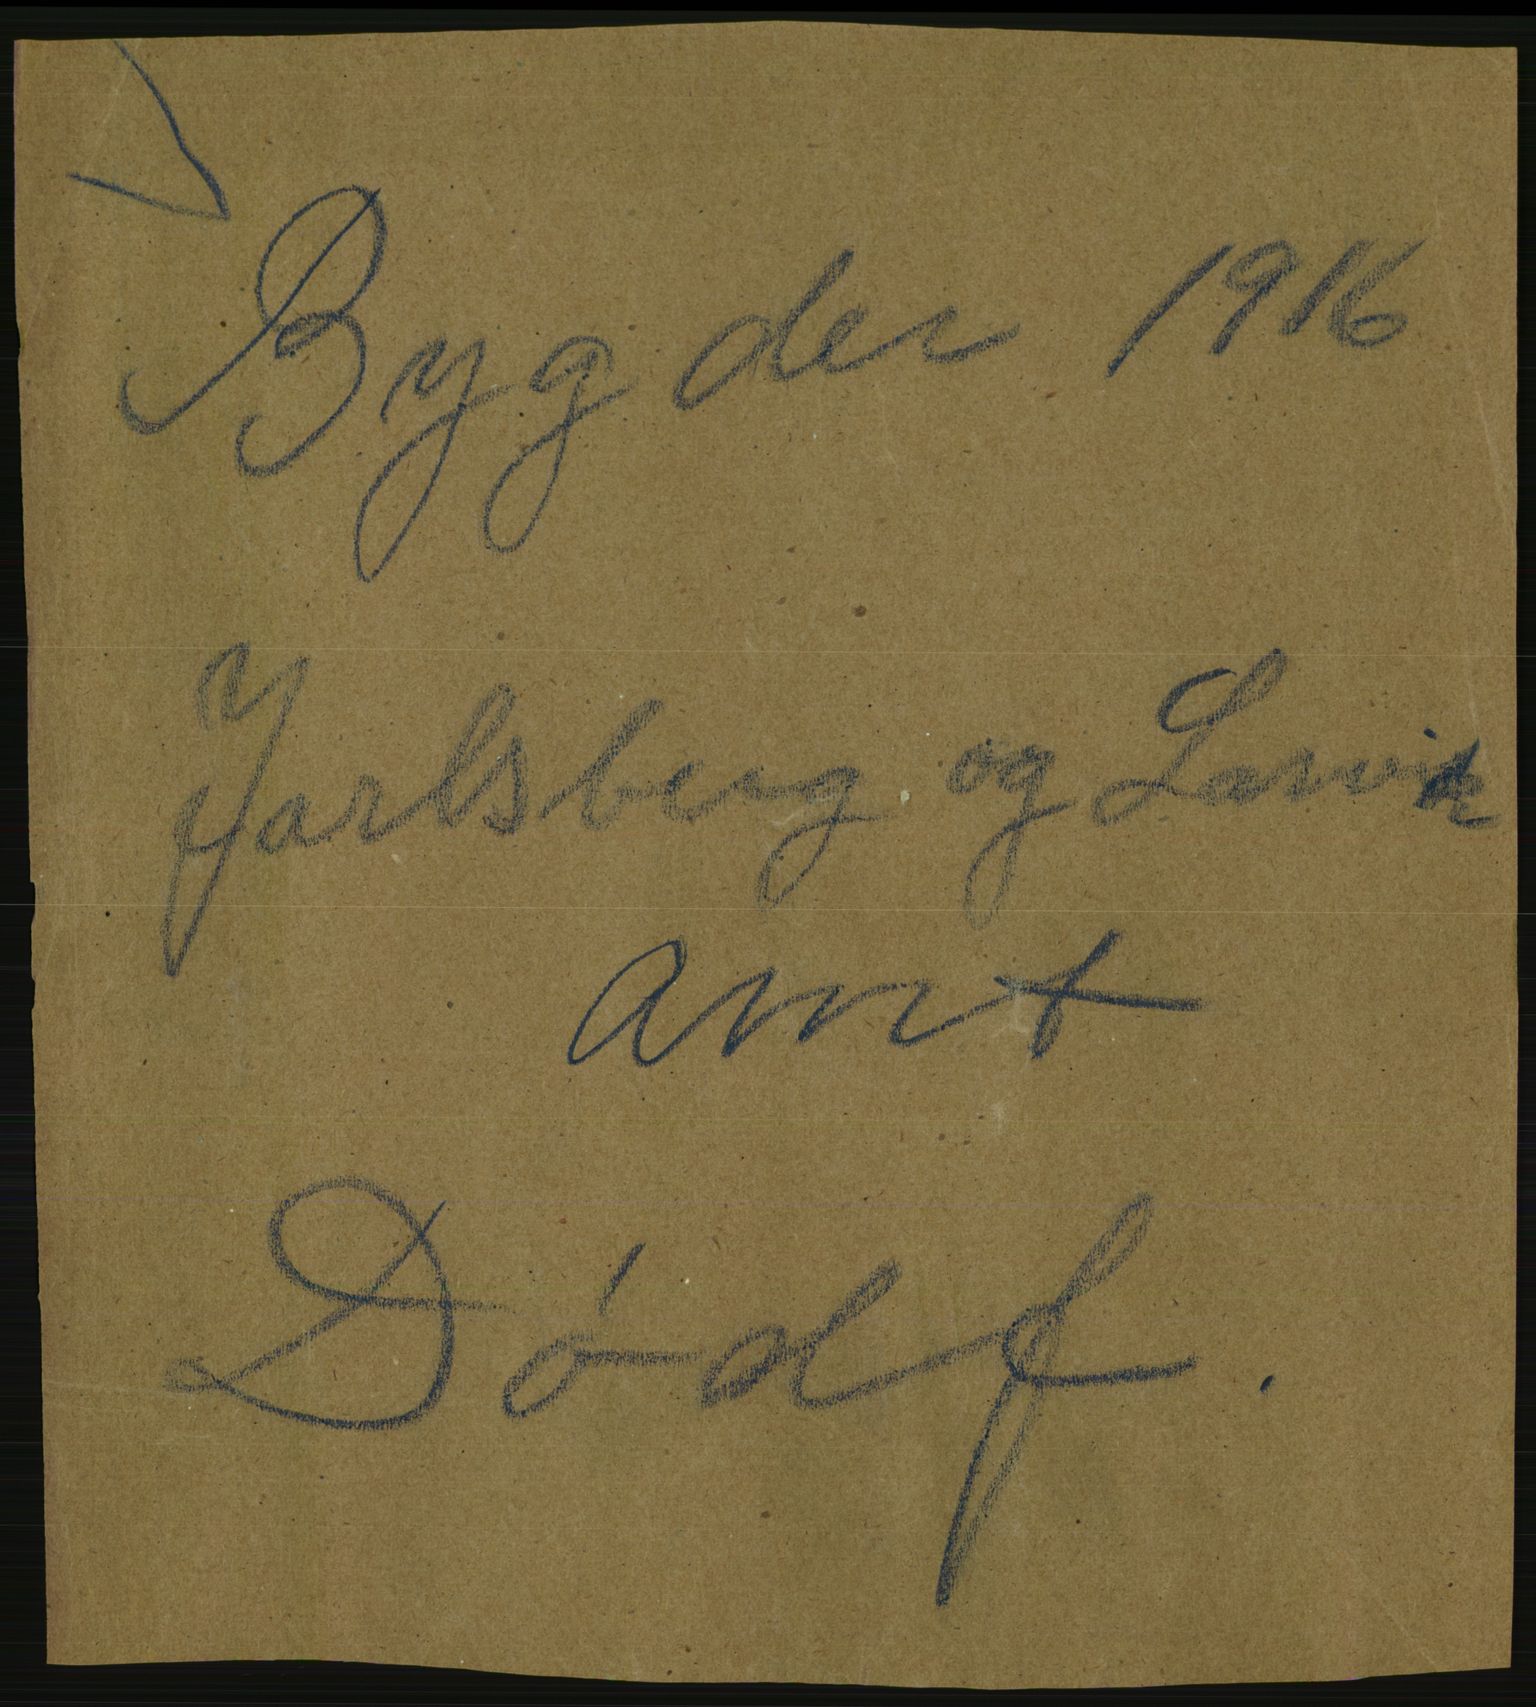 Bygder 1916
Jarlsberg og Larvik
amt
Dødf.